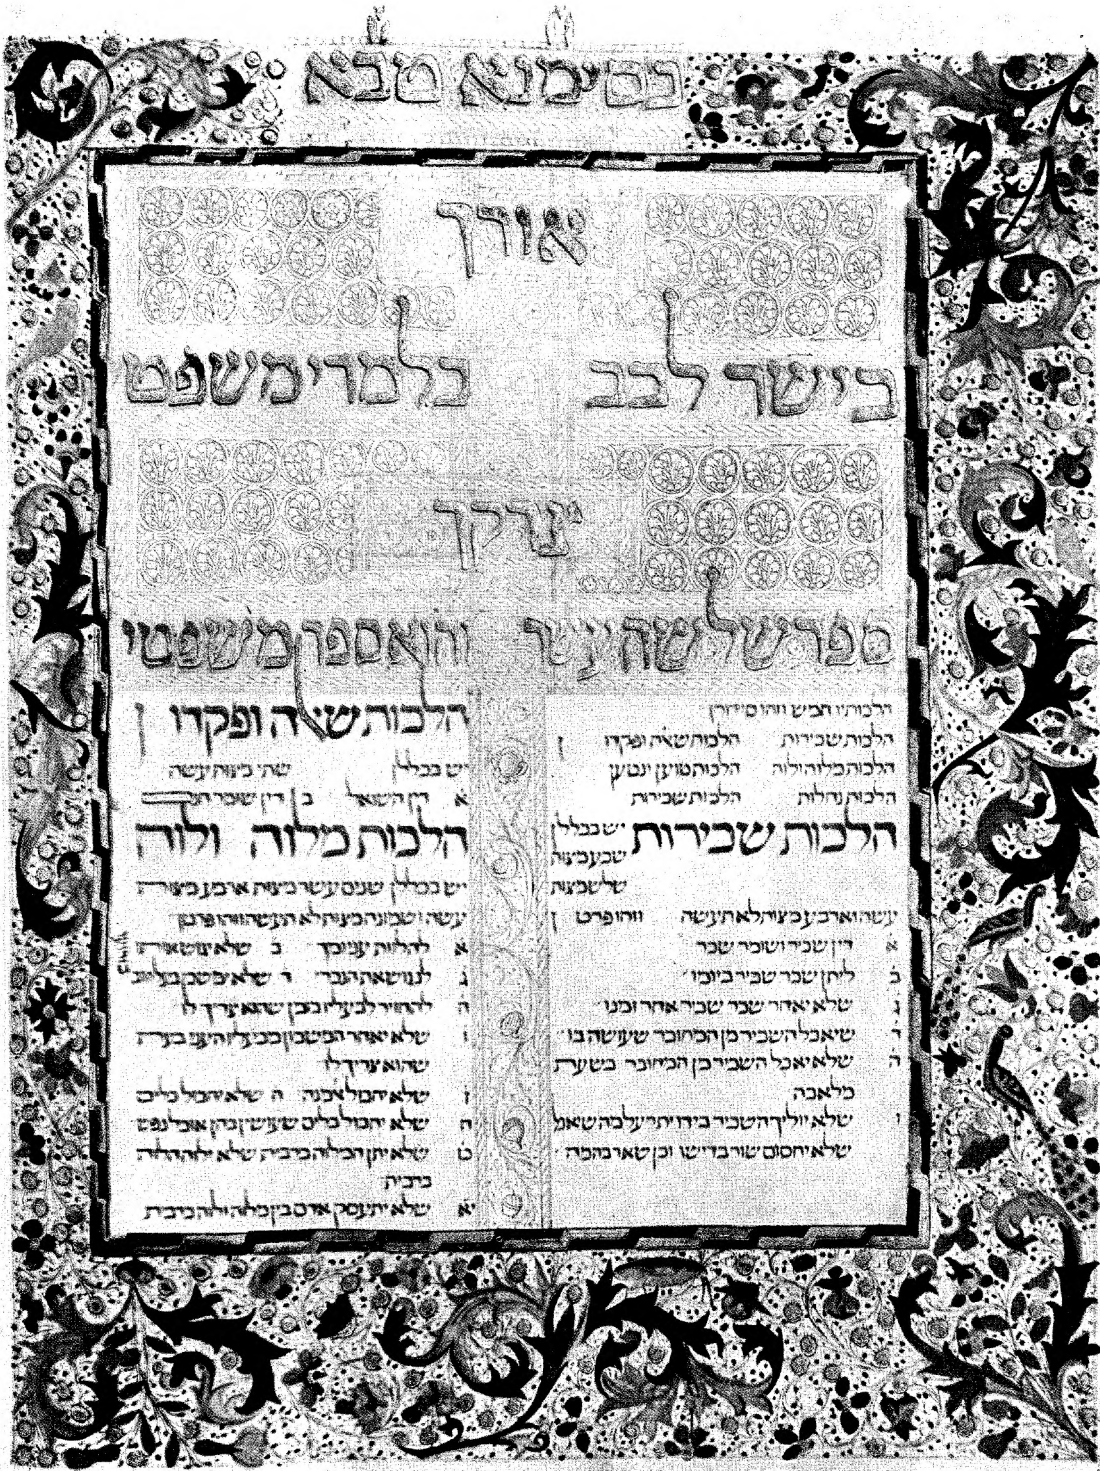 בסימנא טבא
אודך
בישר לבב בלמדי משפטי
צדקך
ספר שלשה עשר והוא ספר משפטי
הלכותיו חמש וזהו סידורן
הלכות שכירות הלכות שאלה ופקדון
הלכות מלוה ולוה הלכות טוען ונטען
הלכות נחלות הלכות שכירות
הלכות שכירות יש בכללן
שבע מצות
שלש מצות
עשה וארבע מצות לא תעשה וזהו פרטן
א דין שכיר ושומר שכר
ב ליתן שכר שכיר ביומו
ג שלא יאחר שכר שכיר אחר זמנו
ד שיאכל השכיר מן המחובר שעושה בו
ה שלא יאכל השכיר מן המחובר בשעת
מלאכה
ו שלא יוליך השכיר בידו יתר על מה שאכל
שלא יחסום שור בדישו וכן שאר בהמה
הלכות שאלה ופקדון
יש בכללן שתי מצות עשה
א דין השואל ב דין שומר חנם
הלכות מלוה ולוה
יש בכללן שנים עשר מצות ארבע מצות
עשה ושמונה מצות לא תעשה וזהו פרטן
א להלוות עני ומך ב שלא יגוש אותו
ג לנגוש את הגוי ד שלא ימשכן בעל חוב
ה להחזיר לבעליו בזמן שהוא צריך לו
ו שלא יאחר המשכון מבעליו העני בעת
שהוא צריך לו
ז שלא יחבול אלמנה ח שלא יחבול כלים
ח שלא יחבול כלים שעושין בהן אוכל נפש
ט שלא יתן המלוה ברבית שלא ילוה הלוה
ברבית
יא שלא יתעסק אדם בין מלוה ולוה ברבית